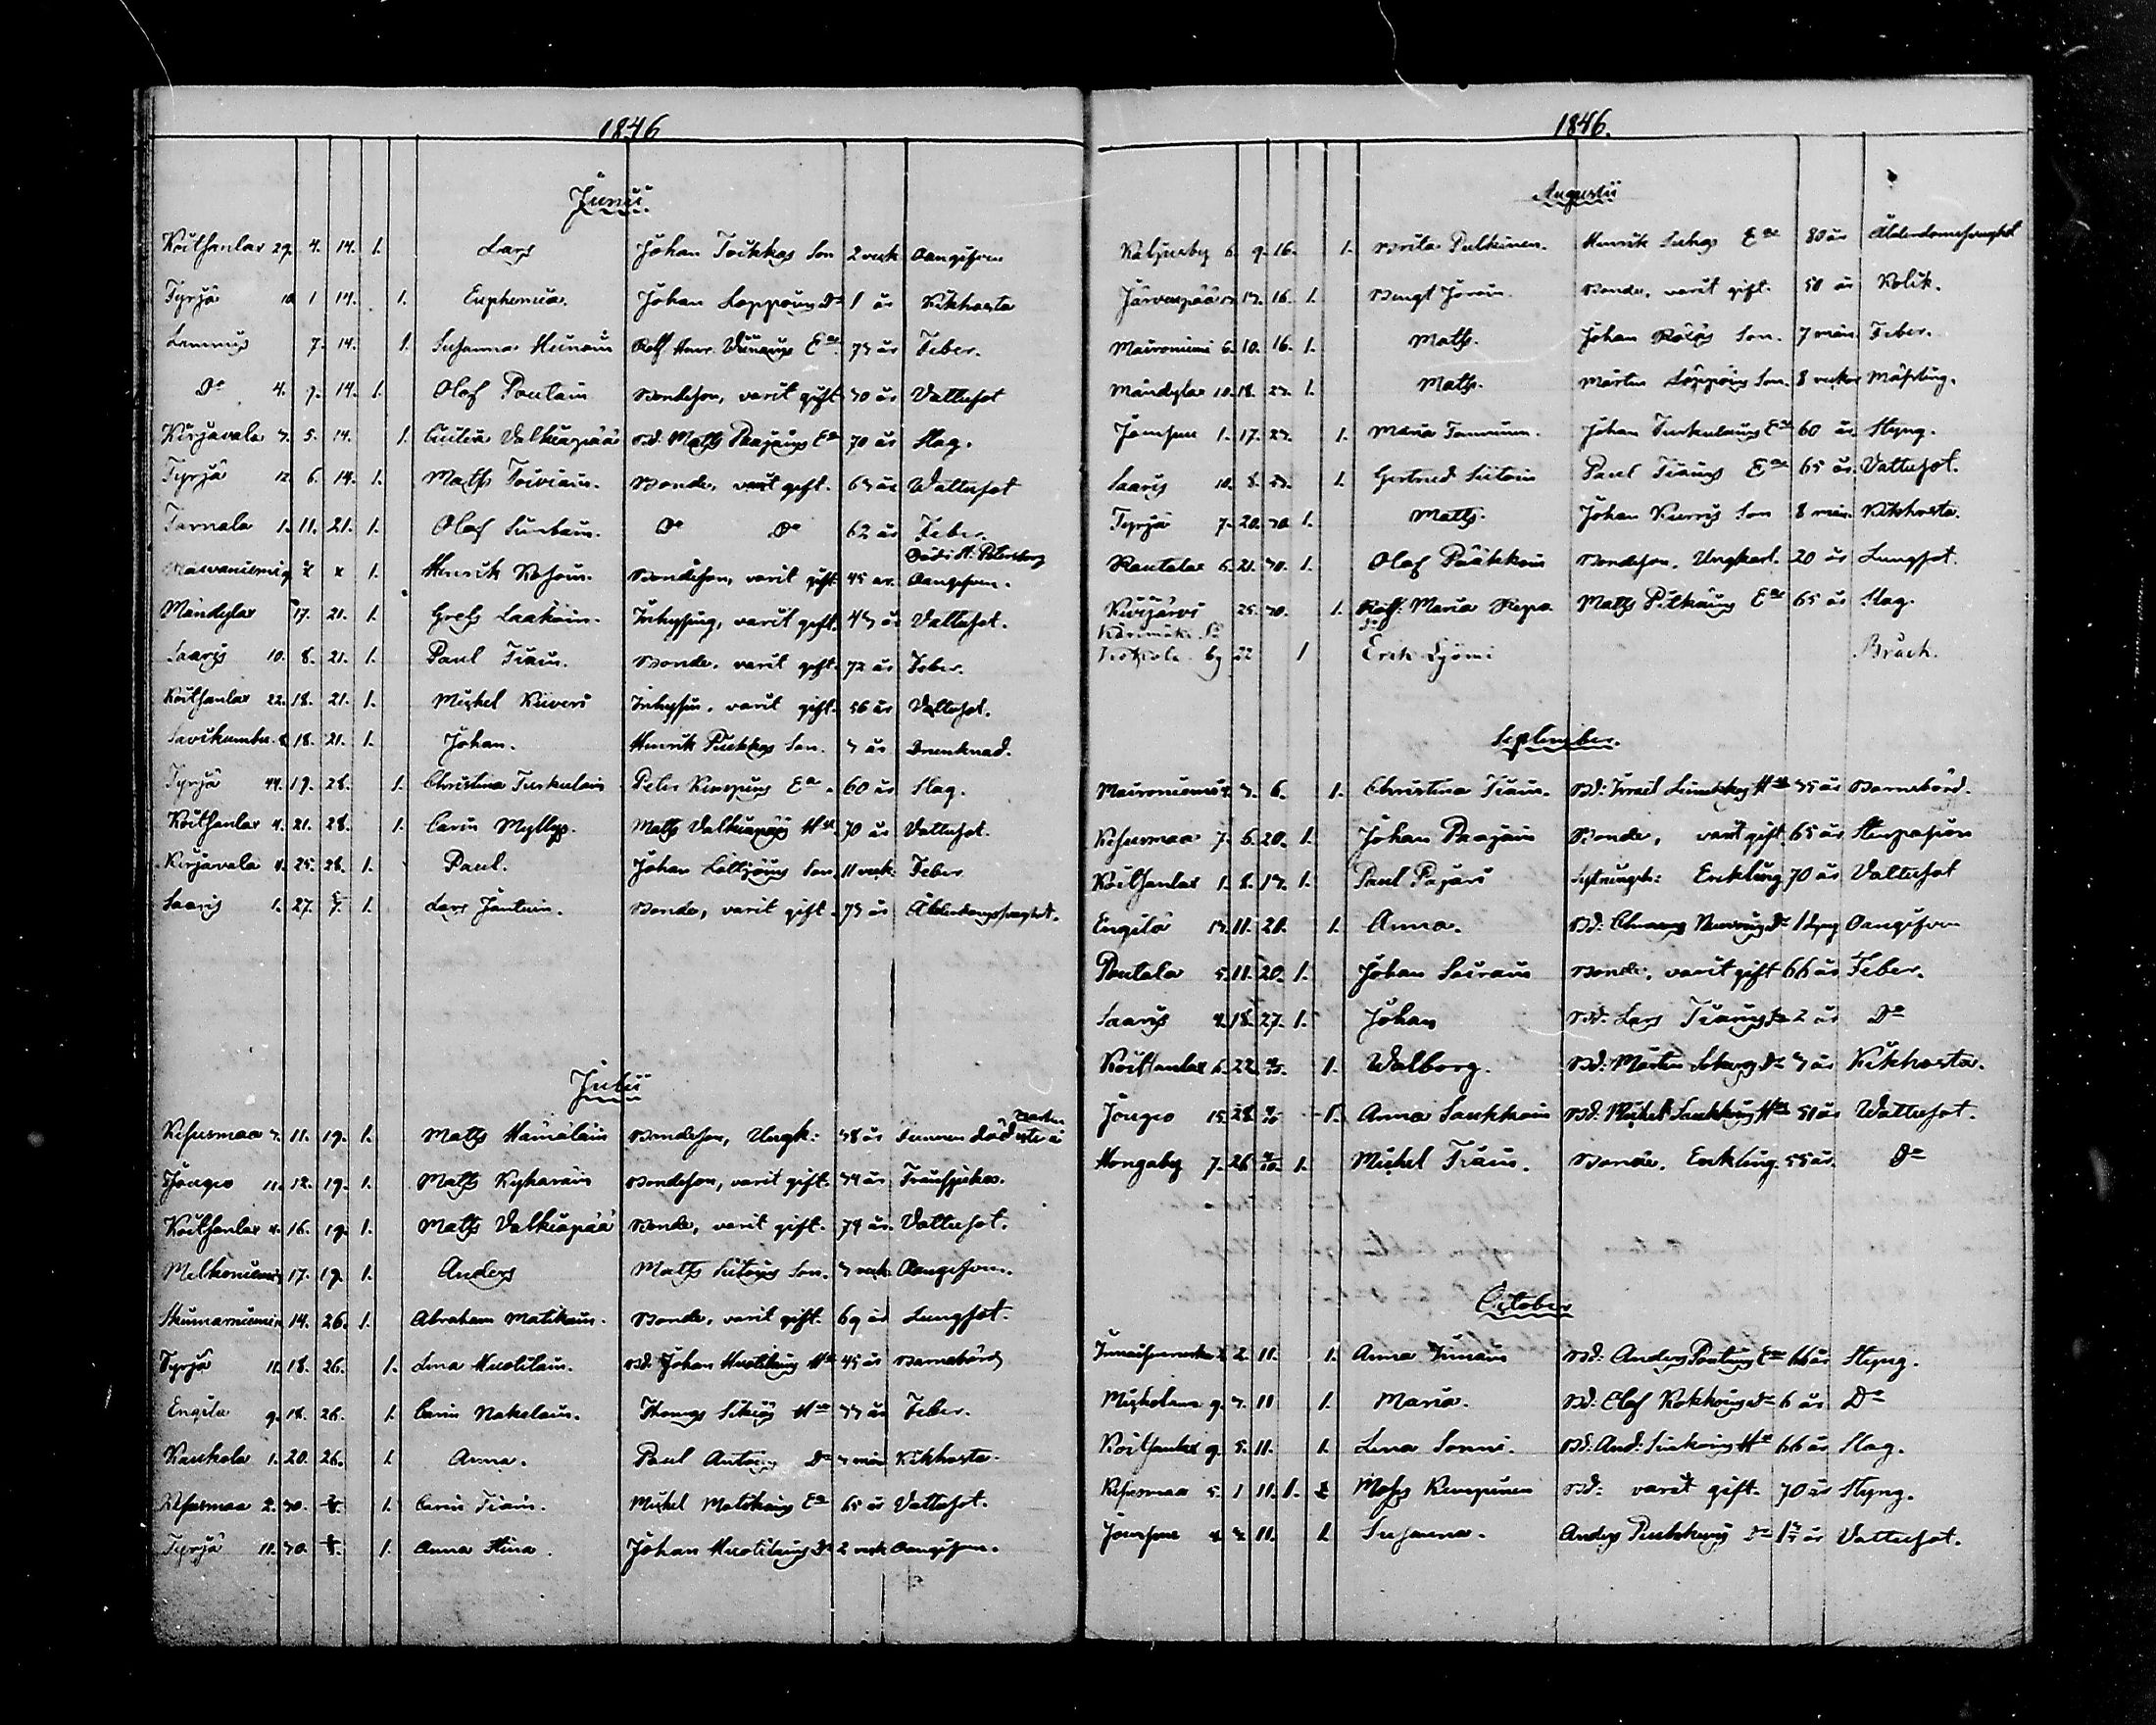 1846
Junii
Koitsanlax 29. 4. 14. 1. Lars Johan Toikkas Son 2 veck Oangifven
Tyrjä 10 1 14. 1. Euphemia. Johan Loppoins Dr 1 år Kikhosta
Lammis 7. 14. 1. Susanna Heinoin Enka 73 år Feber.
Do 4. 9. 14. 1. Olof Poutain Bondeson, varit gift 70 år Vattusot
Kirjavala 3. 5. 14. 1. Cecilia Valkiapää Bd. Matts Paajains Ea 70 år Slag.
Tyrjä 12. 6. 14. 1. Matts Toiviain. Bonde, varit gift. 63 år Wattusot
Tarnala 1. 11. 21. 1. Olof Do Do 62 år Feber.
Död i St. Petersburg
9 x x 1. Henrik Kosoin. Bondeson, varit gift 45 år. Oangifven.
Mändylax 17. 21. 1. Grels Laakoin. Inhysing, varit gift. 43 år Vattusot.
Saaris 10. 8. 21. 1. Paul Tiain. Bonde. varit gift 72 år Feber.
Koitsanlax 22. 18. 21. 1. Michel Kiiveri Inhysin. varit gift. 56 år Vattusot.
Savikumbu 18. 21. 1. Johan. Henrik Pukkas Son. 3 år Drunknad.
Tyrjä 44. 19. 28. 1. Christina Turkulain Peter Kemppins Ea. 60 år Slag.
Koitsanlax 4. 21. 28. 1. Carin Myllys. Matts Valkiapääs Hu 70 år Vattusot.
Kirjavala 4. 25. 28. 1. Paul. Johan Son. 11 veck Feber
Saaris 1. 27. 5/7. 1. Lars Jantuin. Bonde, varit gift. 73 år Ålderdomssvaghet.
Julii
Rehusmaa 3. 11. 19. 1. Matts Hämäläin Bondeson, Ungk: 38 år
Jougio 11. 12. 19. 1. Matts Kyhäräin Bondeson, varit gift. 34 år Fransjukan.
Koitsanlax 4. 16. 19. 1. Matts Valkiapää Bonde, varit gift. 74 år. Vattusot.
Melkoniemi 17. 19. 1. Anders Matts Siitoins Son. 3 veck Oangifven.
14. 26. 1. Abraham Matikain. Bonde, varit gift. 69 år Lungsot.
Tyrjä 11. 18. 26. 1. Lena Huotilain. Bd. Johan Huotilains Hu 45 år Barnsbörd
Engilä 9. 18. 26. 1. Carin Nakelain. Thomas Sikiös Hu 33 år Feber.
Kaukola 1. 20. 26. 1. Anna. Paul Dr 3 mån Kikhosta.
Rehusmaa 2. 30. 2/8. 1. Carin Tiain. Michel Matikains Ea 65 år Vattusot.
Tyrjä 11. 30. 2/8. 1. Anna Stina. Johan Huotilains Dr 2 veck Oangifven.
1846.
Augustii
Kaljusby 6. 9. 16. 1. Brita Pulkinen. Henrik Ea 80 år Ålderdomssvaghet
Järvenpää 13. 16. 1. Bengt Joroin. Bonde, varit gift. 50 år Kolik.
Maironiemi 6. 10. 16. 1. Matts. Johan Son. 7 mån. Feber.
Mändylax 10. 18. 23. 1. Matts. Mårten Loppoins Son. 8 veckor Mässling.
Jomsen 1. 17. 23. 1. Maria Tamminen. Johan Turkulains Ea 60 år. Styng.
Saaris 10. 8. 23. 1. Gertrud Siitoin Paul Tiains Ea 65 år. Vattusot.
Tyrjä 7. 20. 30. 1. Matts. Johan Kurris Son 8 mån. Kikhosta.
Rautalax 6. 21. 30. 1. Olof Pääkkoin Bondeson. Ungkarl. 20 år Lungsot.
Kivijärvi 25. 30. 1. Maria Repo Matts Pitkäins Ea 65 år Slag.
by 22 1 Erik Lyömi Bråck.
September.
Maironiemi 3. 6. 1. Christina Tiain. Bd: Israel Hu 35 år Barnsbörd.
Rehusmaa 7. 6. 20. 1. Johan Paajain Bonde, varit gift. 65 år Stenpassion
Koitsanlax 1. 8. 13. 1. Paul Pajari Enkling 70 år Vattusot
Engilä 13. 11. 20. 1. Anna. Bd: Clemens Dr 1 dygn Oangifven
Poutala 5. 11. 20. 1. Johan Soirain Bonde, varit gift 66 år Feber.
Saaris 4. 18. 27. 1. Johan Bd: Lars Tiains Son 2 år Do
Koitsanlax 6. 22. 4/10. 1. Walborg. Bd: Mårten Dr 3 år Kikhosta.
Jougio 15. 28. 4/10 1. Anna Saukkoin Bd: Michel Saukkoins Hu 51 år Wattusot.
Hongaby 7. 26 4/10. 1. Michel Tiain. Bonde. Enkling. 55 år. Do
October
2. 11. 1. Anna Immoin Bd: Anders Poutains Ea 66 år Styng.
Mikkolans 9. 3. 11 1. Maria. Bd: Olof Kokkoins Dr 6 år Do
Koitsanlax 9. 5. 11. 1. Lena Sonni. Bd: And: Sinkoins Hu 66 år Slag.
Rehusmaa 5. 1 11. 1. Moses Kempinen Bd: varit gift. 70 år Styng.
Jomsen 4. 11. 1. Susanna. Anders Dr Vattusot.